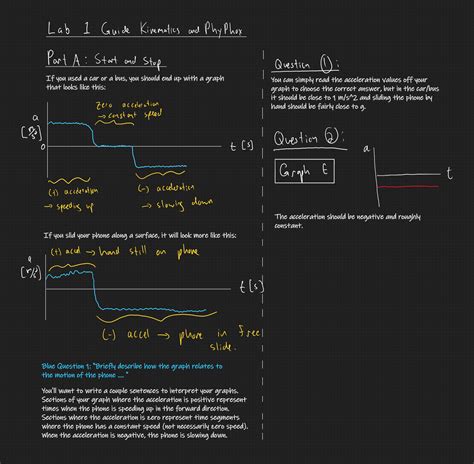 Lab 1 Guide Kinematics and PhyPhox
Part A: Start and Stop
If you used a car or a bus, you should end up with a graph
that looks like this:
Zero acceleration
→ constant speed
a
0
t [s]
(+) acceleration
→ speeding up
(-) acceleration
→ slowing down
If you slid your phone along a surface, it will look more like this:
(+) accel → hand still on phone
a
t [s]
(-) accel → phone in free
slide.
Blue Question 1: "Briefly describe how the graph relates
to the motion of the phone ...."
You'll want to write a couple sentences to interpret your graphs.
Sections of your graph where the acceleration is positive represent
times when the phone is speeding up in the forward direction.
Sections where the acceleration is zero represent time segments
where the phone has a constant speed (not necessarily zero speed).
When the acceleration is negative, the phone is slowing down.
Question 1:
You can simply read the acceleration values off your
graph to choose the correct answer, but in the car/bus
it should be close to 1 m/s^2 and sliding the phone by
hand should be fairly close to g.
Question 2:
Graph E
a
t
The acceleration should be negative and roughly
constant.